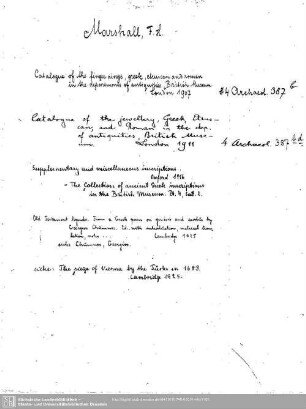 Marshall, F. H.
Catalogue of the finger rings, greek, etruscan and roman
in the departments of antiquities, British Museum
London 1907 84 Archaeol. 387
Catalogue of the jewellery, Greek, Etrus-
can, and Roman in the dep.
of antiquities, British Muse-
um. London 1911 4 Archaeol. 387
Supplementary and miscellaneous inscriptions.
Oxford 1916
= The Collection of ancient Greek inscriptions
in the British Museum. Pt. 4, Sect. 2.
Old Testament legends from a Greek poem on genesis and exodus by
Georgios Chumnos. Ed. with introduction, metrical trans-
lation, notes... Cambridge 1925
siehe Chumnos, Georgios.
siehe: The siege of Vienna by the Turks in 1683.
Cambridge 1925.